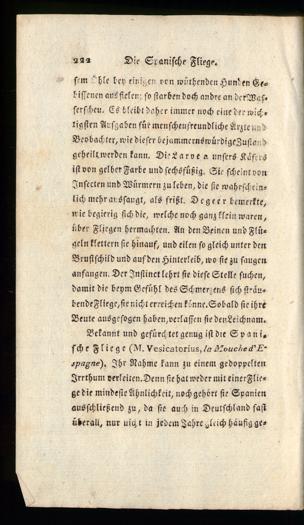 222 Die Spanische Fliege.
sem Öhle bey einigen von wüthenden Hunden Ge-
bissenen ausfielen; so starben doch andre an der Was-
serscheu. Es bleibt daher immer noch eine der wich-
tigsten Aufgaben für menschenfreundliche Ärzte und
Beobachter, wie dieser bejammernswürdige Zustand
geheilt werden kann. Die Larve a unsers Käfers
ist von gelber Farbe und sechsfüßig. Sie scheint von
Insecten und Würmern zu leben, die sie wahrschein-
lich mehr aussaugt, als frißt. Degeer bemerkte,
wie begierig sich die, welche noch ganz klein waren,
über Fliegen hermachten. An den Beinen und Flü-
geln klettern sie hinauf, und eilen so gleich unter den
Brustschild und auf den Hinterleib, wo sie zu saugen
anfangen. Der Instinct lehrt sie diese Stelle suchen,
damit die beym Gefühl des Schmerzens sich sträu-
bende Fliege, sie nicht erreichen könne. Sobald sie ihre
Beute ausgesogen haben, verlassen sie den Leichnam.
Bekannt und gefürchtet genug ist die Spani-
sche Fliege (M. Vesicatorius, la Mouche d'E-
spagne). Ihr Nahme kann zu einem gedoppelten
Irrthum verleiten. Denn sie hat weder mit einer Flie-
ge die mindeste Ähnlichkeit, noch gehört sie Spanien
ausschließend zu, da sie auch in Deutschland fast
überall, nur nicht in jedem Jahre gleich häufig ge-